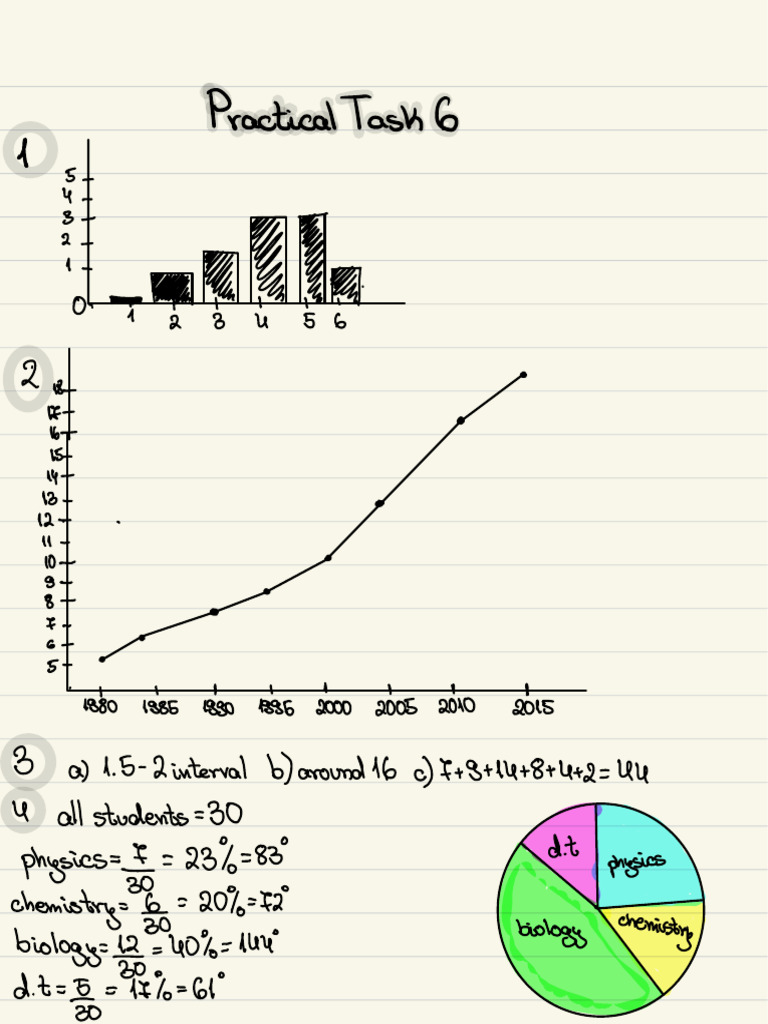 Practical Task 6
1
5
4
3
2
1
0
1 2 3 4 5 6
2
18
17
16
15
14
13
12
11
10
9
8
7
6
5
1980 1985 1990 1995 2000 2005 2010 2015
3 a) 1.5-2 interval b) around 16 c) 7+9+14+8+4+2=44
4 all students=30
physics=7/30=23%=83°
chemistry=6/30=20%=72°
biology=12/30=40%=144°
d.t=5/30=17%=61°
d.t
physics
chemistry
biology